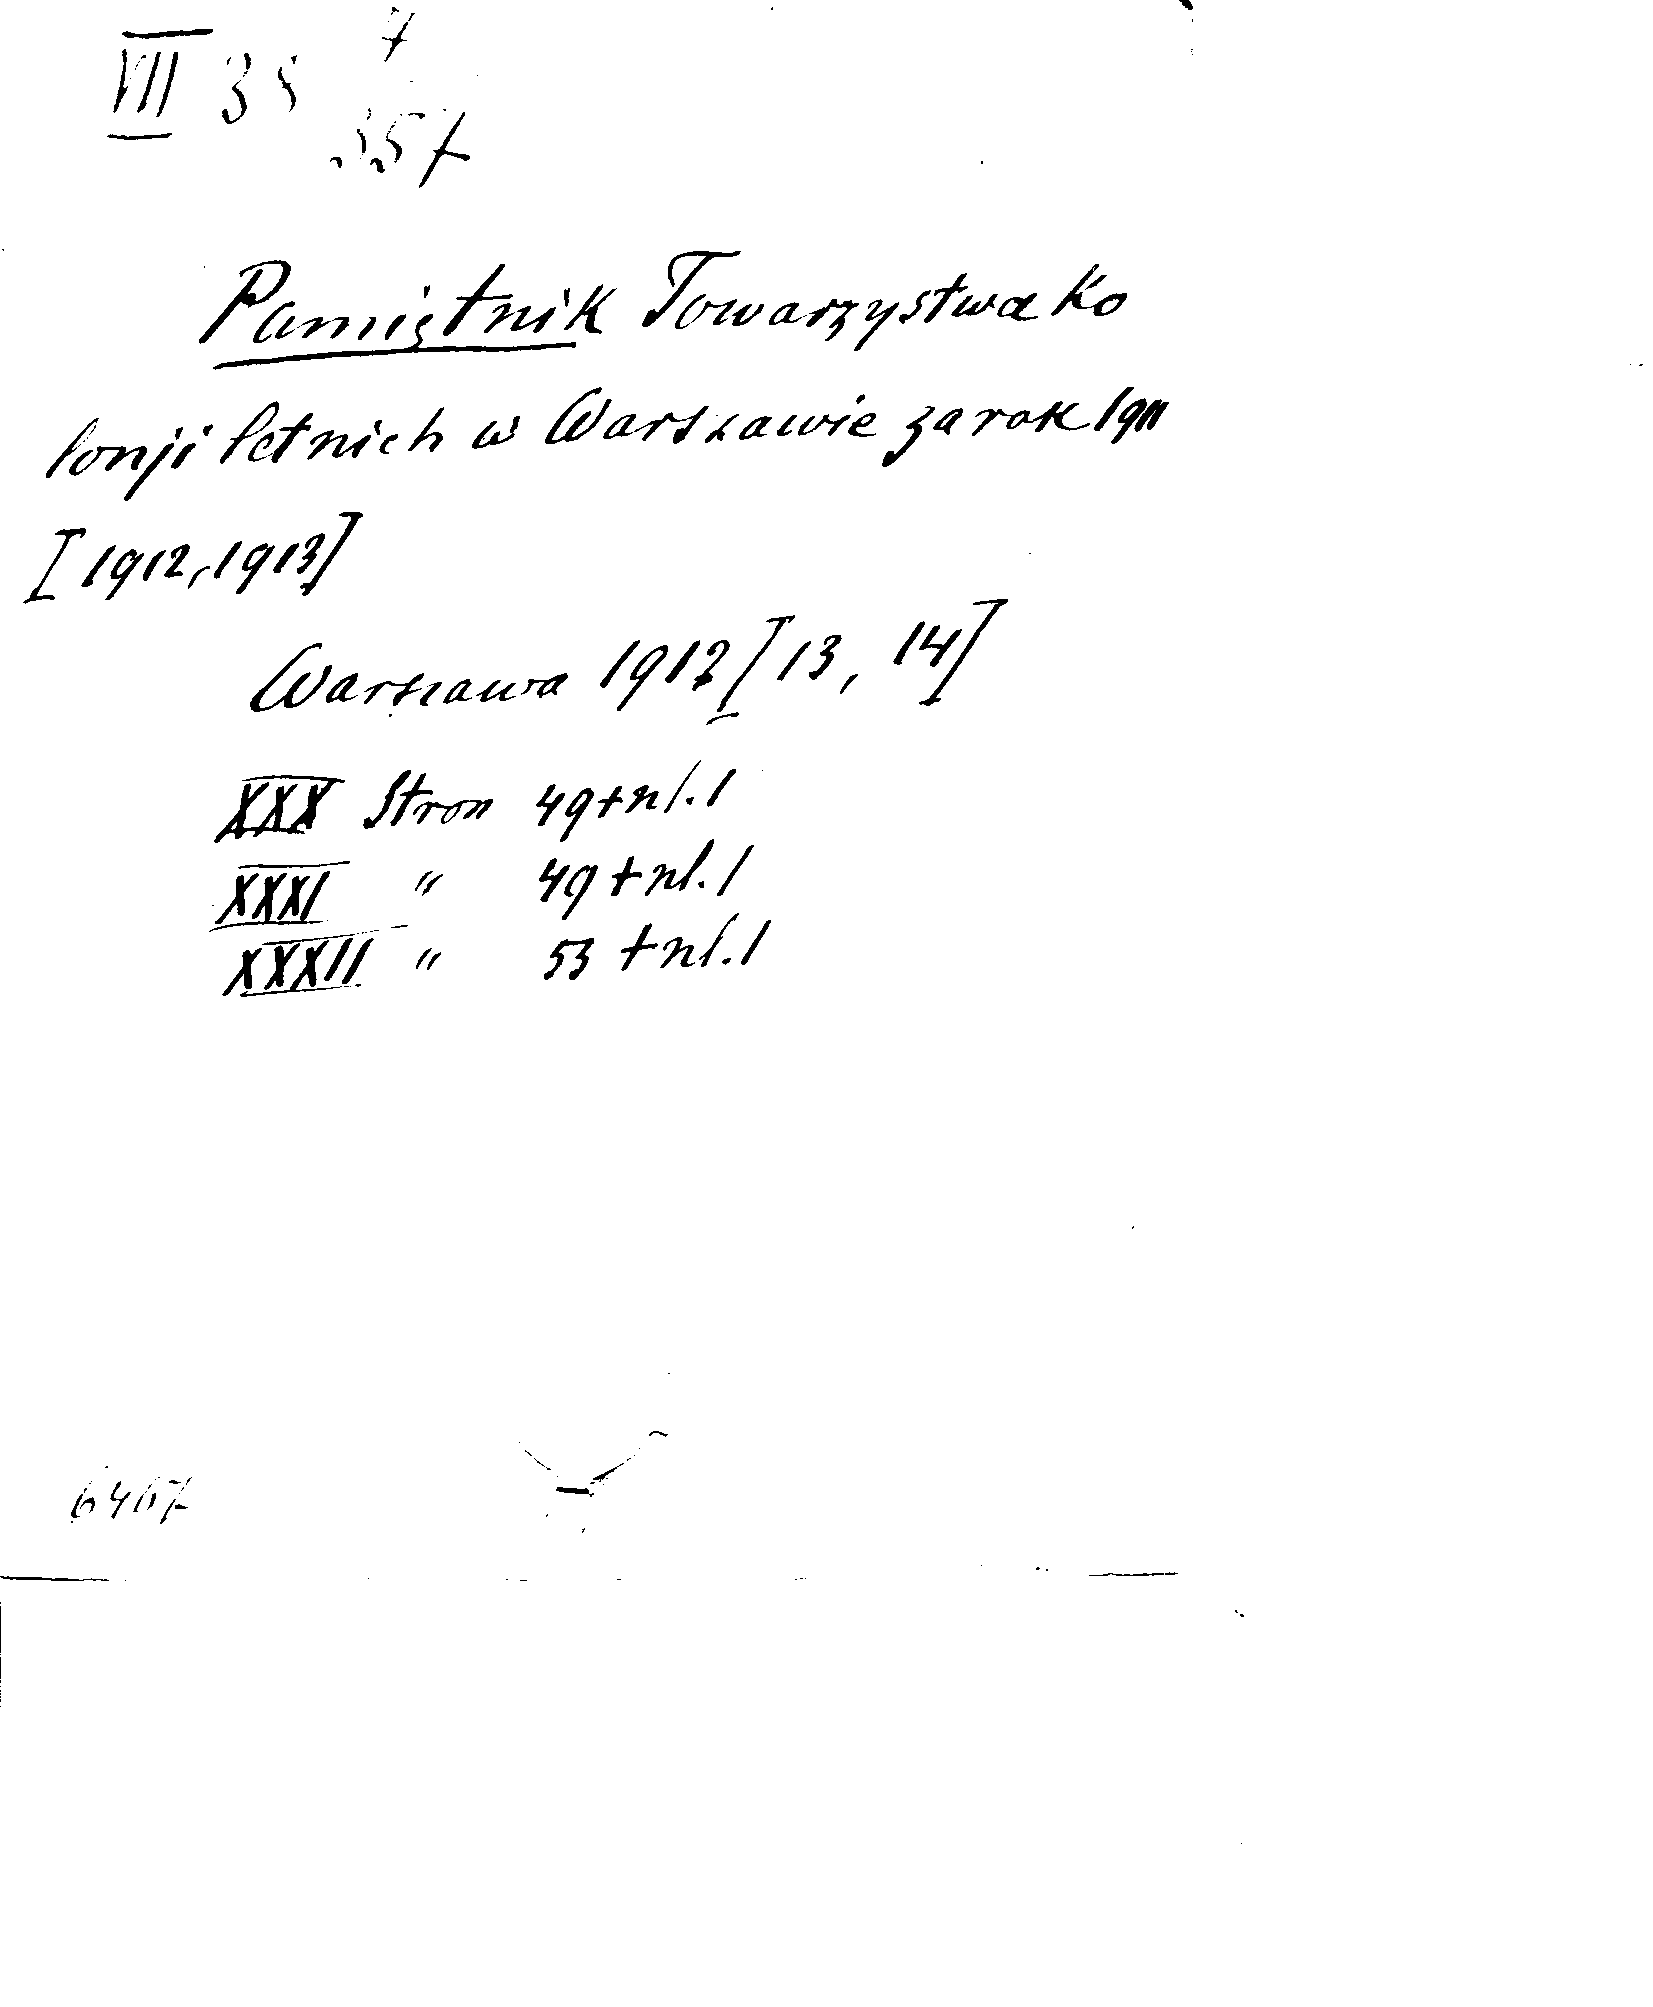 VII 35 7
357
Pamiętnik Towarzystwa Ko
lonji letnich w Warszawie za rok 1911
[1912, 1913]
Warszawa 1912 [13, 14]
XXX Stron 49 + nl. 1
XXXI " 49 + nl. 1
XXXII " 53 + nl. 1
6467